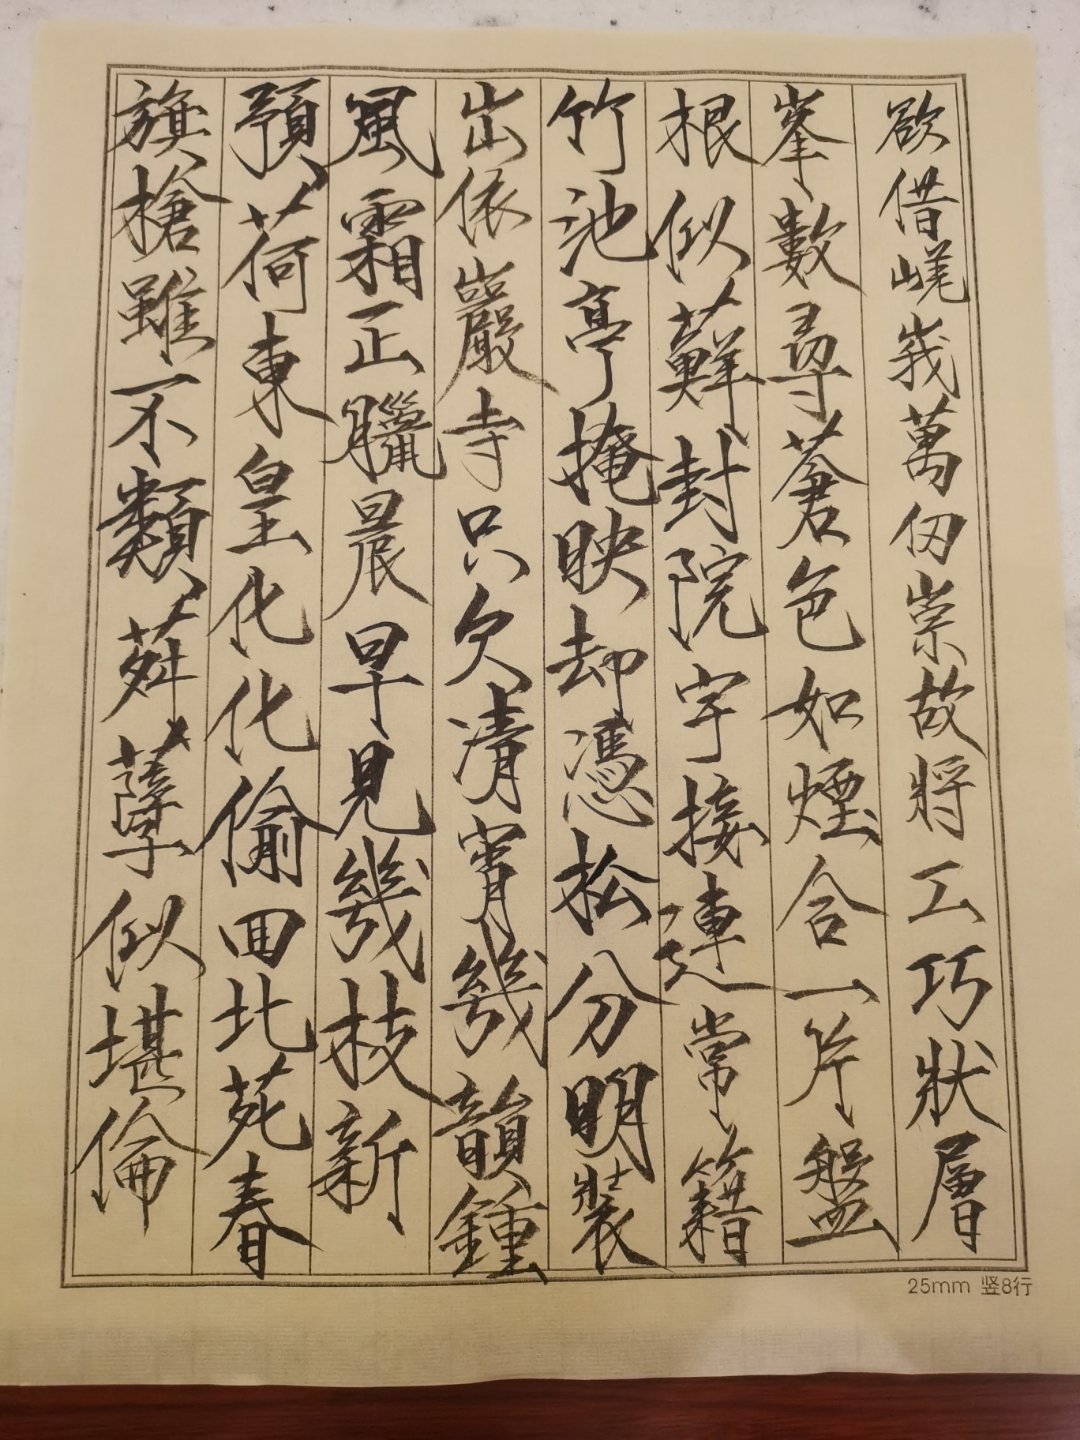 欲借嵯峩萬仞崇故將工巧狀層
峯數尋蒼色如煙合一片盤
根似蘚封院宇接連常籍
竹池亭掩映却憑松分明裝
出依巖寺只欠清宵幾韻鍾
風霜正臘晨早見幾枝新
預荷東皇化化偷回北苑春
旗槍雖不類荈蘖似堪倫
25mm 竖8行